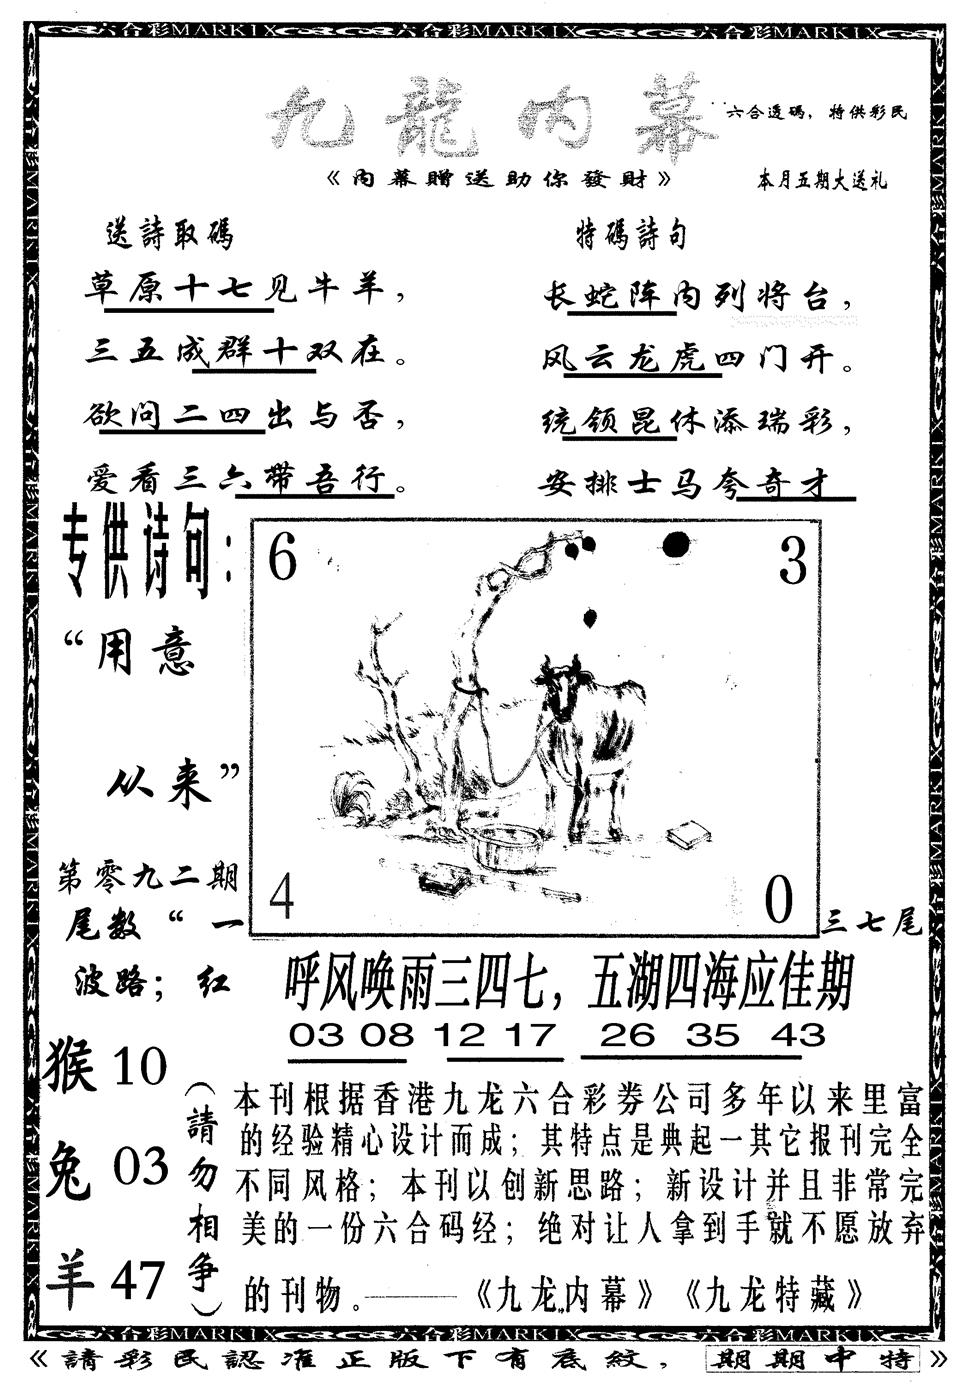 六合彩MARKIX 六合彩MARKIX 六合彩MARKIX
九龍内幕
六合透碼，特供彩民
《内幕贈送助你發財》
本月五期大送礼
送詩取碼
草原十七见牛羊，
三五成群十双在。
欲问二四出与否，
爱看三六带吾行。
特碼詩句
长蛇阵内列将台，
风云龙虎四门开。
统领昆休添瑞彩，
安排士马夸奇才
专供诗句：
“用意
从来”
第零九二期
尾数“一
三七尾
波路；红
6
3
4
0
呼风唤雨三四七，五湖四海应佳期
03 08 12 17 26 35 43
猴 10
兔 03
羊 47
（請勿相争）
本刊根据香港九龙六合彩券公司多年以来里富
的经验精心设计而成；其特点是典起一其它报刊完全
不同风格；本刊以创新思路；新设计并且非常完
美的一份六合码经；绝对让人拿到手就不愿放弃
的刊物。———《九龙内幕》《九龙特藏》
六合彩MARKIX 六合彩MARKIX 六合彩MARKIX
《請彩民認准正版下有底紋，期期中特》